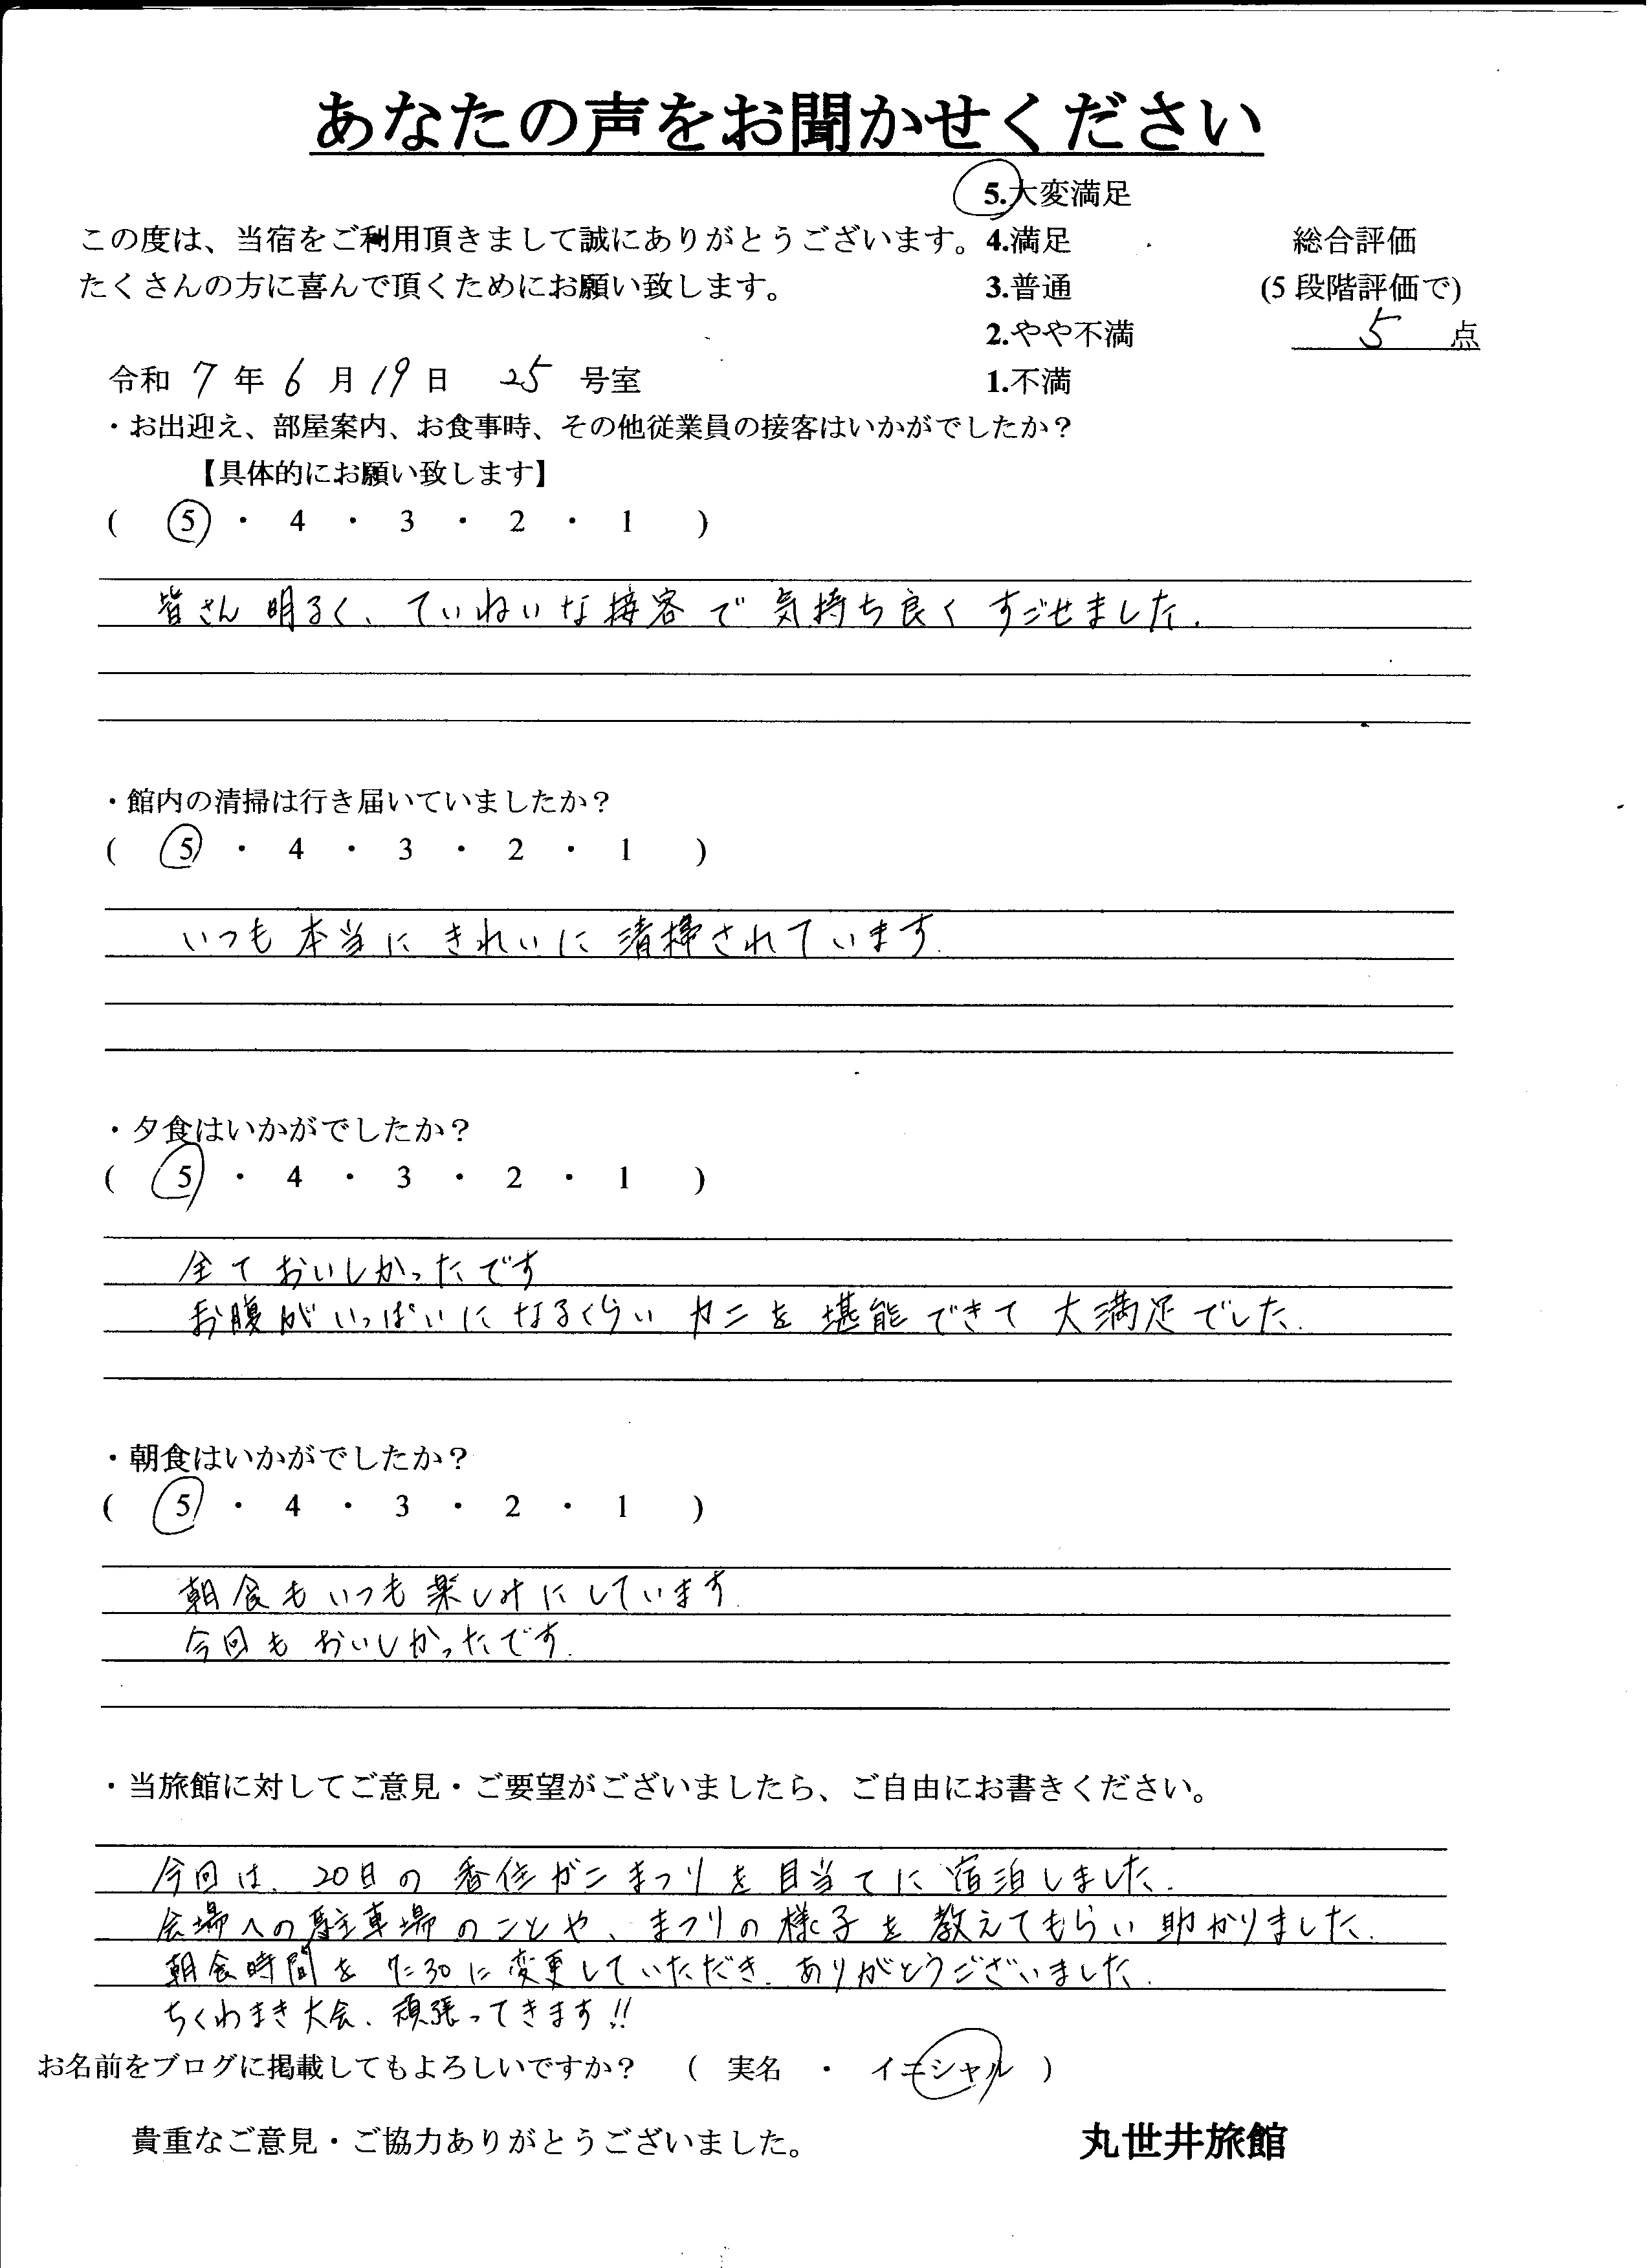 あなたの声をお聞かせください
5.大変満足
この度は、当宿をご利用頂きまして誠にありがとうございます。 4.満足 総合評価
たくさんの方に喜んで頂くためにお願い致します。 3.普通 (5 段階評価で)
2.やや不満 5 点
令和 7 年 6 月 19 日 25 号室 1.不満
・お出迎え、部屋案内、お食事時、その他従業員の接客はいかがでしたか？
【具体的にお願い致します】
( 5 ・ 4 ・ 3 ・ 2 ・ 1 )
皆さん 明るく、ていねいな接客で 気持ち良く すごせました.
・館内の清掃は行き届いていましたか？
( 5 ・ 4 ・ 3 ・ 2 ・ 1 )
いつも 本当に きれいに 清掃されています.
・夕食はいかがでしたか？
( 5 ・ 4 ・ 3 ・ 2 ・ 1 )
全て おいしかったです
お腹がいっぱいになるくらい カニを 堪能できて 大満足でした.
・朝食はいかがでしたか？
( 5 ・ 4 ・ 3 ・ 2 ・ 1 )
朝食もいつも楽しみにしています.
今回も おいしかったです.
・当旅館に対してご意見・ご要望がございましたら、ご自由にお書きください。
今回は、20日の 香住ガニまつりを 目当てに 宿泊しました.
会場への駐車場のことや、まつりの様子を 教えてもらい 助かりました.
朝食時間を 7:30に変更していただき、ありがとうございました.
ちくわまき大会、頑張ってきます!!
お名前をブログに掲載してもよろしいですか？ ( 実名 ・ イニシャル )
貴重なご意見・ご協力ありがとうございました。 丸世井旅館